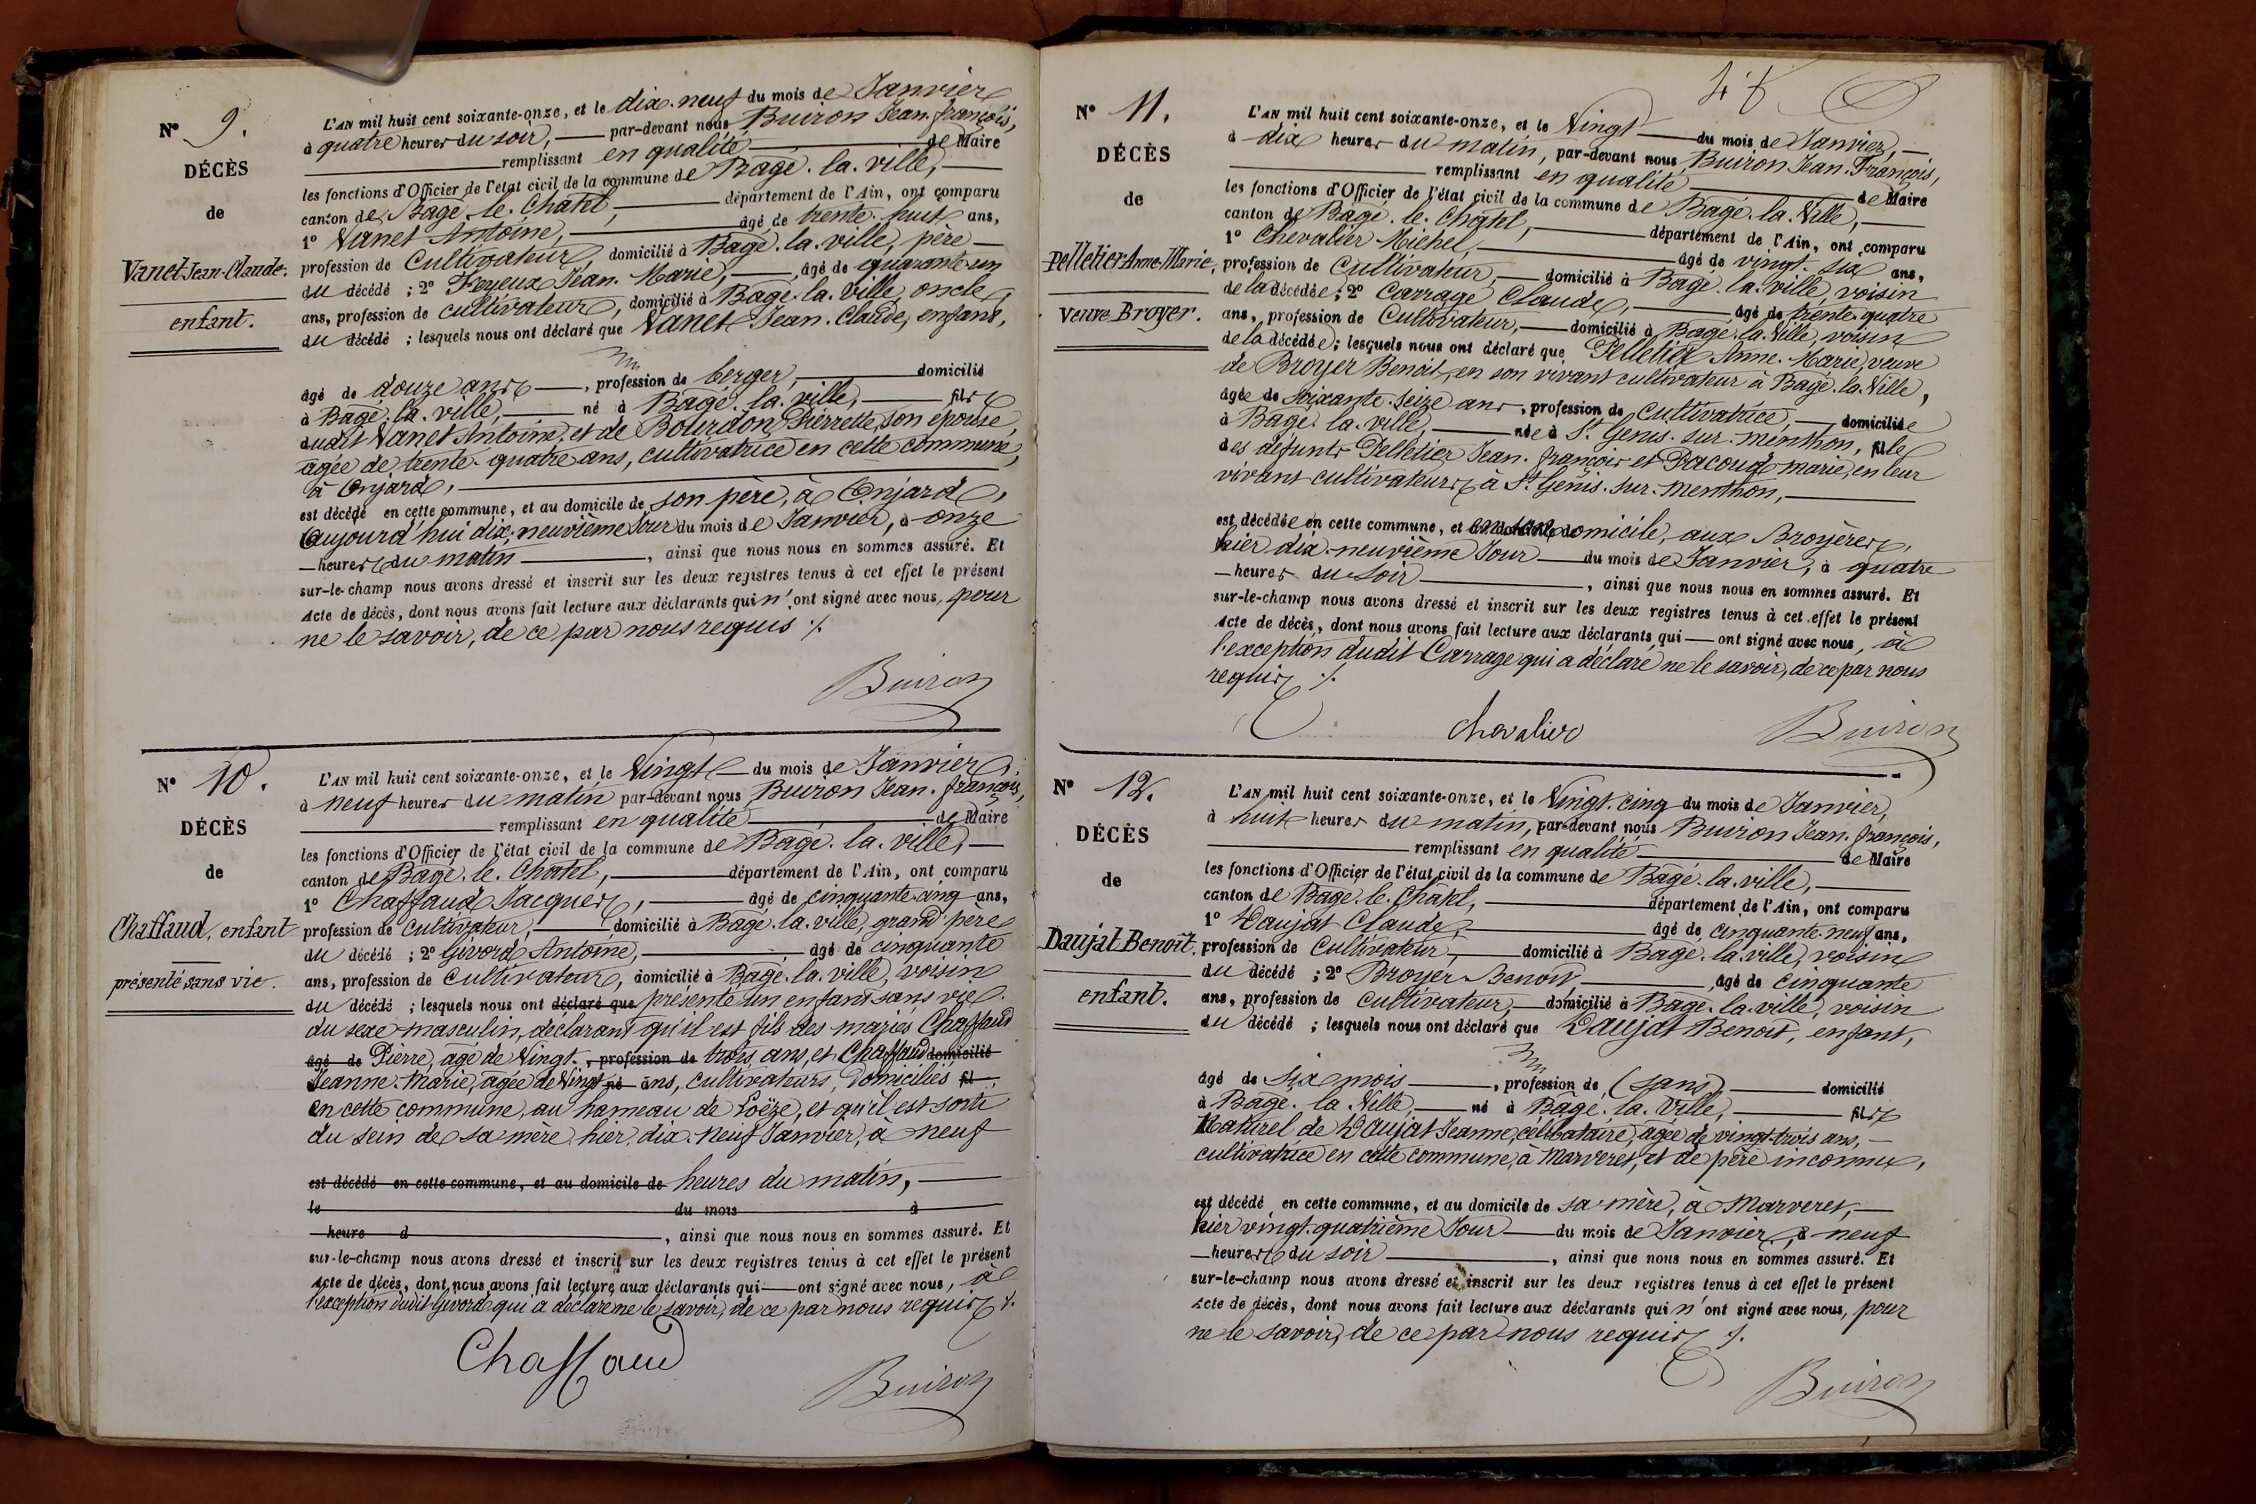 N° 9.
DÉCÈS
de
Vanet Jean-Claude.
enfant.
L'AN mil huit cent soixante-onze, et le dix-neuf du mois de Janvier
à quatre heures du soir, par-devant nous Buiron Jean-françois,
remplissant en qualité de Maire
les fonctions d'Officier de l'état civil de la commune de Bagé-la-ville,
canton de Bagé-le-Châtel, département de l'Ain, ont comparu
1° Vanet Antoine, âgé de trente-huit ans,
profession de Cultivateur, domicilié à Bagé-la-ville, père
du décédé ; 2° Feyeux Jean-Marie, âgé de quarante-un
ans, profession de cultivateur, domicilié à Bagé-la-Ville, oncle
du décédé ; lesquels nous ont déclaré que Vanet Jean-Claude, enfant,
âgé de douze ans, profession de berger, domicilié
à Bagé-la-ville, né à Bagé-la-ville, fils
dudit Vanet Antoine, et de Bourdon Pierrette, son épouse,
agée de trente-quatre ans, cultivatrice en cette commune,
à Onjard,
est décédé en cette commune, et au domicile de son père, à Onjard,
aujourd'hui dix-neuvième Jour du mois de Janvier, à onze
heures du matin, ainsi que nous nous en sommes assuré. Et
sur-le-champ nous avons dressé et inscrit sur les deux registres tenus à cet effet le présent
Acte de décès, dont nous avons fait lecture aux déclarants qui n'ont signé avec nous, pour
ne le savoir, de ce par nous requis ./.
Buiron
N° 10.
DÉCÈS
de
Chaffaud, enfant
présenté sans vie.
L'AN mil huit cent soixante-onze, et le Vingt du mois de Janvier
à neuf heures du matin par-devant nous Buiron Jean-françois,
remplissant en qualité de Maire
les fonctions d'Officier de l'état civil de la commune de Bagé-la-ville,
canton de Bagé-le-Châtel, département de l'Ain, ont comparu
1° Chaffaud Jacques, âgé de cinquante-cinq ans,
profession de cultivateur, domicilié à Bagé-la-ville, grand-père
du décédé ; 2° Givord Antoine, âgé de cinquante
ans, profession de cultivateur, domicilié à Bagé-la-ville, voisin
du décédé ; lesquels nous ont déclaré que présenté un enfant sans vie
du sexe masculin, déclarant qu'il est fils des mariés Chaffaud
âgé de Pierre, agé de Vingt-, profession de trois ans, et Chaffaud domicilié
Jeanne-Marie, agée de Vingt né ans, cultivateurs, domiciliés fil
en cette commune, au hameau de Loëze, et qu'il est sorti
du sein de sa mère, hier, dix-neuf Janvier, à neuf
est décédé en cette commune, et au domicile de heures du matin,
le du mois à
heure d, ainsi que nous nous en sommes assuré. Et
sur-le-champ nous avons dressé et inscrit sur les deux registres tenus à cet effet le présent
Acte de décès, dont nous avons fait lecture aux déclarants qui ont signé avec nous, à
l'exception dudit Givord qui a déclaré ne le savoir, de ce par nous requis ./.
Chaffaud
Buiron
N° 11.
DÉCÈS
de
Pelletier Anne-Marie,
Veuve Broyer.
L'AN mil huit cent soixante-onze, et le Vingt du mois de Janvier,
à dix heures du matin, par-devant nous Buiron Jean-François,
remplissant en qualité de Maire
les fonctions d'Officier de l'état civil de la commune de Bagé-la-Ville,
canton de Bagé-le-Châtel, département de l'Ain, ont comparu
1° Chevalier Michel, âgé de vingt-six ans,
profession de Cultivateur, domicilié à Bagé-la-ville, voisin
de la décédée ; 2° Carrage Claude, âgé de trente-quatre
ans, profession de Cultivateur, domicilié à Bagé-la-Ville, voisin
de la décédée ; lesquels nous ont déclaré que Pelletier Anne-Marie, veuve
de Broyer Benoit, en son vivant cultivateur à Bagé-la-Ville,
âgée de soixante-seize ans, profession de cultivatrice, domiciliée
à Bagé-la-ville, née à St Genis-sur-menthon, fille
des défunts Pelletier Jean-françois et Pacoud marie, en leur
vivant cultivateurs à St Genis-sur-menthon,
est décédée en cette commune, et en son domicile, aux Broyères,
hier dix-neuvième Jour du mois de Janvier, à quatre
heures du soir, ainsi que nous nous en sommes assuré. Et
sur-le-champ nous avons dressé et inscrit sur les deux registres tenus à cet effet le présent
Acte de décès, dont nous avons fait lecture aux déclarants qui ont signé avec nous, à
l'exception dudit Carrage qui a déclaré ne le savoir, de ce par nous
requis ./.
Chevalier
Buiron
N° 12.
DÉCÈS
de
Daujat Benoît.
enfant.
L'AN mil huit cent soixante-onze, et le Vingt-cinq du mois de Janvier,
à huit heures du matin, par-devant nous Buiron Jean-françois,
remplissant en qualité de Maire
les fonctions d'Officier de l'état civil de la commune de Bagé-la-ville,
canton de Bagé-le-Châtel, département de l'Ain, ont comparu
1° Daujat Claude, âgé de cinquante-neuf ans,
profession de Cultivateur, domicilié à Bagé-la-ville, voisin
du décédé ; 2° Broyer Benoit, âgé de cinquante
ans, profession de cultivateur, domicilié à Bagé-la-ville, voisin
du décédé ; lesquels nous ont déclaré que Daujat Benoit, enfant,
âgé de six mois, profession de (sans) domicilié
à Bagé-la-Ville, né à Bagé-la-Ville, fils
Naturel de Daujat Jeanne, célibataire, agée de vingt-trois ans,
cultivatrice en cette commune, à Marveret, et de père inconnu,
est décédé en cette commune, et au domicile de sa mère, à Marveret,
hier vingt-quatrième Jour du mois de Janvier, à neuf
heures du soir, ainsi que nous nous en sommes assuré. Et
sur-le-champ nous avons dressé et inscrit sur les deux registres tenus à cet effet le présent
Acte de décès, dont nous avons fait lecture aux déclarants qui n'ont signé avec nous, pour
ne le savoir, de ce par nous requis ./.
Buiron